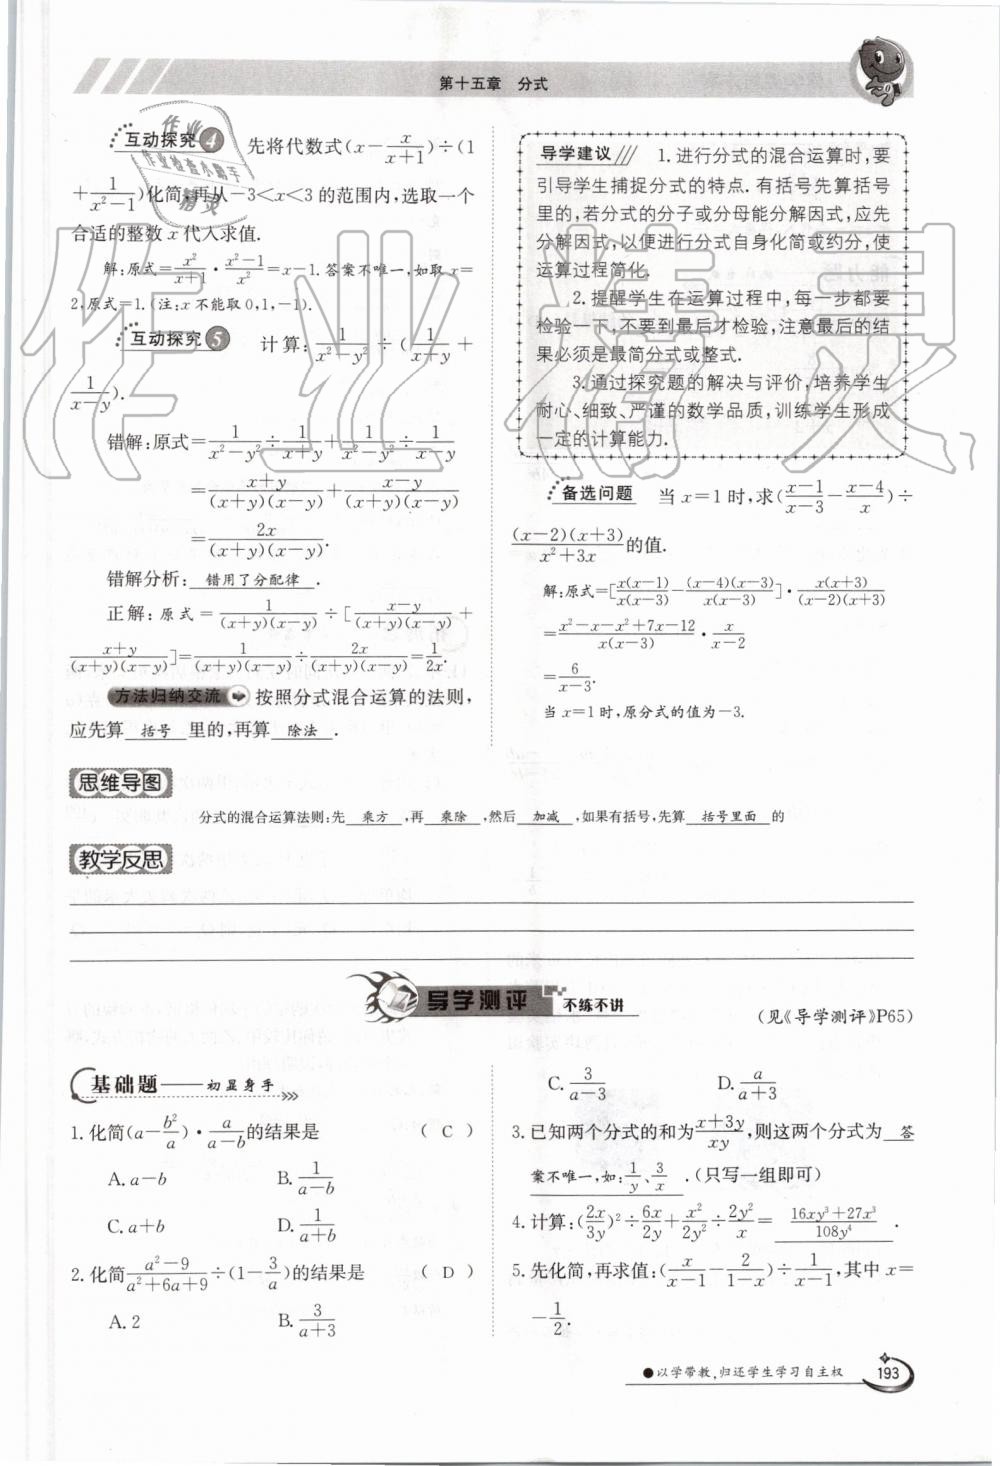 第十五章　分式
互动探究4　先将代数式(x－x/(x+1))÷(1
＋1/(x²－1))化简,再从－3<x<3 的范围内,选取一个
合适的整数 x 代入求值.
解:原式＝x²/(x+1)·(x²－1)/x²＝x－1.答案不唯一,如取 x＝
2,原式＝1.(注:x 不能取 0,1,－1).
互动探究5　计算:1/(x²－y²)÷(1/(x+y)＋
1/(x－y)).
错解:原式＝1/(x²－y²)÷1/(x+y)＋1/(x²－y²)÷1/(x－y)
＝(x+y)/((x+y)(x－y))＋(x－y)/((x+y)(x－y))
＝2x/((x+y)(x－y)).
错解分析: 错用了分配律 .
正解:原式＝1/((x+y)(x－y))÷[(x－y)/((x+y)(x－y))＋
(x+y)/((x+y)(x－y))]＝1/((x+y)(x－y))÷2x/((x+y)(x－y))＝1/2x.
方法归纳交流　按照分式混合运算的法则,
应先算 括号 里的,再算 除法 .
导学建议　1.进行分式的混合运算时,要
引导学生捕捉分式的特点.有括号先算括号
里的,若分式的分子或分母能分解因式,应先
分解因式,以便进行分式自身化简或约分,使
运算过程简化.
2.提醒学生在运算过程中,每一步都要
检验一下,不要到最后才检验,注意最后的结
果必须是最简分式或整式.
3.通过探究题的解决与评价,培养学生
耐心、细致、严谨的数学品质,训练学生形成
一定的计算能力.
备选问题　当 x＝1 时,求((x－1)/(x－3)－(x－4)/x)÷
(x－2)(x+3)/(x²+3x)的值.
解:原式＝[x(x－1)/x(x－3)－(x－4)(x－3)/x(x－3)]·x(x+3)/((x－2)(x+3))
＝(x²－x－x²+7x－12)/x(x－3)·x/(x－2)
＝6/(x－3).
当 x＝1 时,原分式的值为－3.
思维导图
分式的混合运算法则:先 乘方 ,再 乘除 ,然后 加减 ,如果有括号,先算 括号里面 的
教学反思
导学测评 不练不讲
(见《导学测评》P65)
基础题——初显身手
1.化简(a－b²/a)·a/(a－b)的结果是　( C )
A.a－b　B.1/(a－b)
C.a+b　D.1/(a+b)
2.化简(a²－9)/(a²+6a+9)÷(1－3/a)的结果是　( D )
A.2　B.3/(a+3)
C.3/(a－3)　D.a/(a+3)
3.已知两个分式的和为(x+3y)/xy,则这两个分式为 答
案不唯一,如:1/y、3/x .(只写一组即可)
4.计算:(2x/3y)²÷6x/2y＋x²/2y²÷2y²/x＝ (16xy³+27x³)/108y⁴ .
5.先化简,再求值:(x/(x－1)－2/(1－x))÷1/(x－1),其中 x＝
－1/2.
●以学带教,归还学生学习自主权
193
作业
作业检查小帮手
精灵
作业精灵